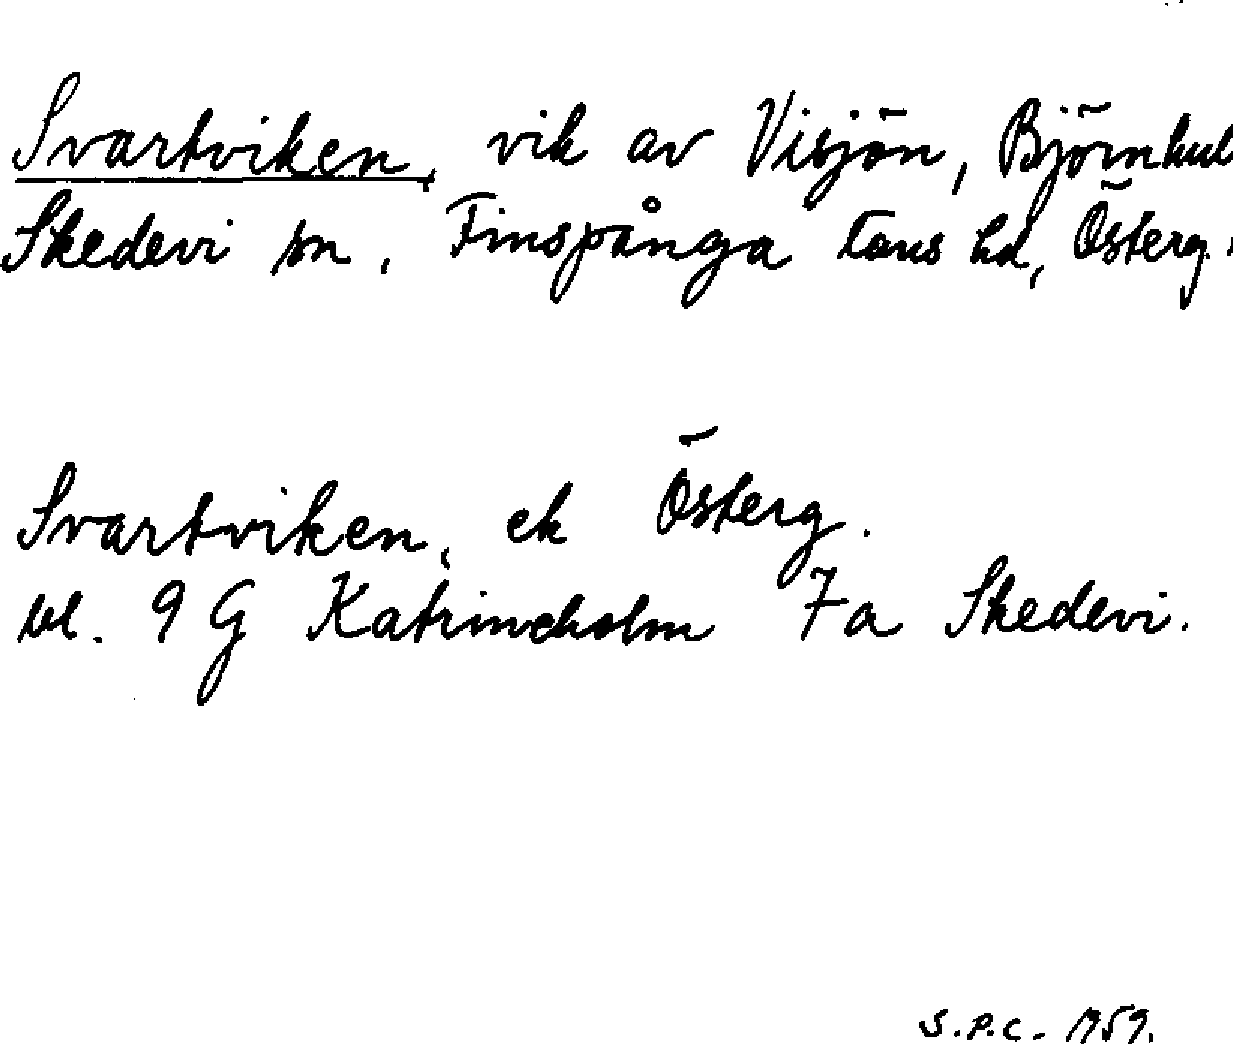 Svartviken, vik av Visjön, Björnhul
Skedevi sn, Finspånga läns hd, Österg.
Svartviken, ek Österg.
bl. 9 G Katrineholm 7a Skedevi.
S.P.C. 1959.